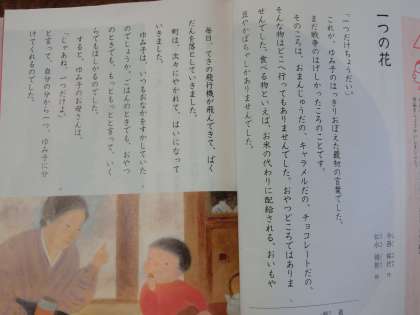 一つの花
「一つだけちょうだい。」
これが、ゆみ子のはっきりおぼえた最初の言葉でした。
まだ戦争のはげしかったころのことです。
そのころは、おまんじゅうだの、キャラメルだの、チョコレートだの、
そんな物はどこへ行ってもありませんでした。おやつどころではありま
せんでした。食べる物といえば、お米の代わりに配給される、おいもや
豆やかぼちゃしかありませんでした。
毎日、てきの飛行機が飛んできて、ばく
だんを落としていきました。
町は、次々にやかれて、はいになって
いきました。
ゆみ子は、いつもおなかをすかしていた
のでしょうか。ごはんのときでも、おやつ
のときでも、もっともっとと言って、いく
らでもほしがるのでした。
すると、ゆみ子のお母さんは、
「じゃあね、一つだけよ。」
と言って、自分の分から一つ、ゆみ子に分
けてくれるのでした。